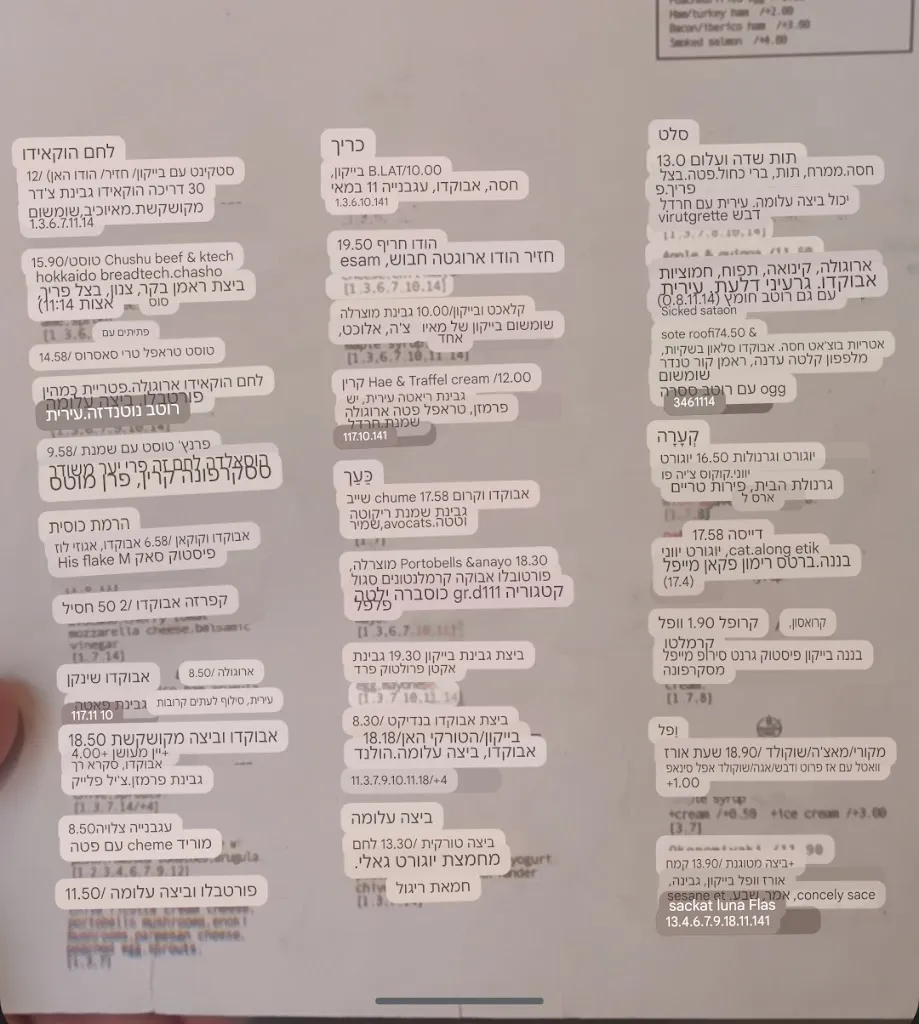 Ham/turkey ham /+2.00
Bacon/iberico ham /+3.00
Smoked salmon /+4.00
לחם הוקאידו
סטקינט עם בייקון/ חזיר/ הודו האן) /12
30 דריכה הוקאידו גבינת צ'דר
מקושקשת.מאיוכיב,שומשום
1.3.6.7.11.14
15.90/טוסט Chushu beef & ktech
hokkaido breadtech.chasho
ביצת ראמן בקר, צנון, בצל פריך,
אצות 11:14)
סוס
[1 3,6,
פתיתים עם
טוסט טראפל טרי סאסרוס /14.58
לחם הוקאידו ארוגולה.פטריית כמהין
פורטבלו, ביצה עלומה
רוטב נוטנדזה.עירית
פרנץ' טוסט עם שמנת /9.58
הוסאלדה לחם זה פרי יער משודר
ססקרפונה קרין, פרן מוטס
הרמת כוסית
אבוקדו וקוקאן /6.58 אבוקדו, אגוזי לוז
פיסטוק סאק His flake M
קפרזה אבוקדו /2 50 חסיל
mozzarella cheese.balsamic
vinegar
[1.7.14]
אבוקדו שינקן
ארוגולה /8.50
גבינת פאטה
עירית, סילוף לעתים קרובות
117.11 10
אבוקדו וביצה מקושקשת 18.50
+יין מעושן +4.00
אבוקדו, סקרא רך
גבינת פרמזן.צ'יל פלייק
[1.3.7.14/+4]
עגבנייה צלויה8.50
מוריד cheme עם פטה
[1.2.3.4.6.7.9.12]
פורטבלו וביצה עלומה /11.50
portobello mushrooms.enoki
mushrooms.parmesan cheese.
poached egg.sprouts.
[1.3.7]
כריך
B.LAT/10.00 בייקון,
חסה, אבוקדו, עגבנייה 11 במאי
1.3.6.10.141
הודו חריף 19.50
חזיר הודו ארוגטה חבוש, esam
[1.3.6.7.10.14]
קלאכט ובייקון/10.00 גבינת מוצרלה
שומשום בייקון של מאיו צ'ה, אלוכט,
אחד
maple syrup
[1.3.6.7.10.11 14]
קרין Hae & Traffel cream /12.00
גבינת ריאטה עירית, יש
פרמזן, טראפל פטה ארוגולה
שמנת.חרדל
117.10.141
כַּעַך
אבוקדו וקרום 17.58 chume שייב
גבינת שמנת ריקוטה
וטטה.avocats,שמיר
[1.7]
Portobells &anayo 18.30 מוצרלה,
פורטובלו אבוקה קרמלנטונים סגול
קטגוריה gr.d111 כוסברה ילטה
פלפל
[1.3,6.7.10.11]
ביצת גבינת בייקון 19.30 גבינת
אקטן פרולטוק פרד
egg.mayonese.
[1.3.7.10.11.14]
ביצת אבוקדו בנדיקט /8.30
בייקון/הטורקי האן/18.18 –
אבוקדו, ביצה עלומה.הולנד
11.3.7.9.10.11.18/+4
ביצה עלומה
ביצה טורקית /13.30 לחם
מחמצת יוגורט גאלי.
yogurt
חמאת ריגול
סלט
תות שדה ועלום 13.0
חסה.ממרח, תות, ברי כחול.פטה.בצל
פריך.פ
יכול ביצה עלומה. עירית עם חרדל
דבש virutgrette
[1.3.7.8.10.14]
Apple & quinoa /11.50
ארוגולה, קינואה, תפוח, חמוציות
אבוקדו. גרעיני דלעת, עירית
עם גם רוטב חומץ (0.8.11.14)
Sicked sataón
sote roofi74.50 &
אטריות בוצ'אט חסה. אבוקדו סלאון בשקיות,
מלפפון קלטה עדנה, ראמן קור טנדר
שומשום
ogg עם רוטב ססרה
3461114
קְעָרָה
יוגורט וגרנולות 16.50 יוגורט
יווני.קוקוס צ'יה פו
גרנולת הבית, פירות טריים
ארס ל
[1.7.8]
דייסה 17.58
cat.along etik, יוגורט יווני
בננה.ברטס רימון פקאן מייפל
(17.4)
קרופל 1.90 וופל
קרואסון,
קרמלטו
בננה בייקון פיסטוק גרנט סירופ מייפל
מסקרפונה
cream.
[1 7.8]
וָפֶל
מקורי/מאצ'ה/שוקולד /18.90 שעת אורז
וואטל עם אז פרוט ודבש/אגה/שוקולד אפל סינאפ
+1.00
maple syrup
+cream /+0.50 +ice cream /+3.00
[3.7]
Okonomiyaki /11.90
+ביצה מטוגנת /13.90 קמח
אורז וופל בייקון, גבינה,
concely sace, אמר, שבע. sesane et
sackat luna Flas
13.4.6.7.9.18.11.141